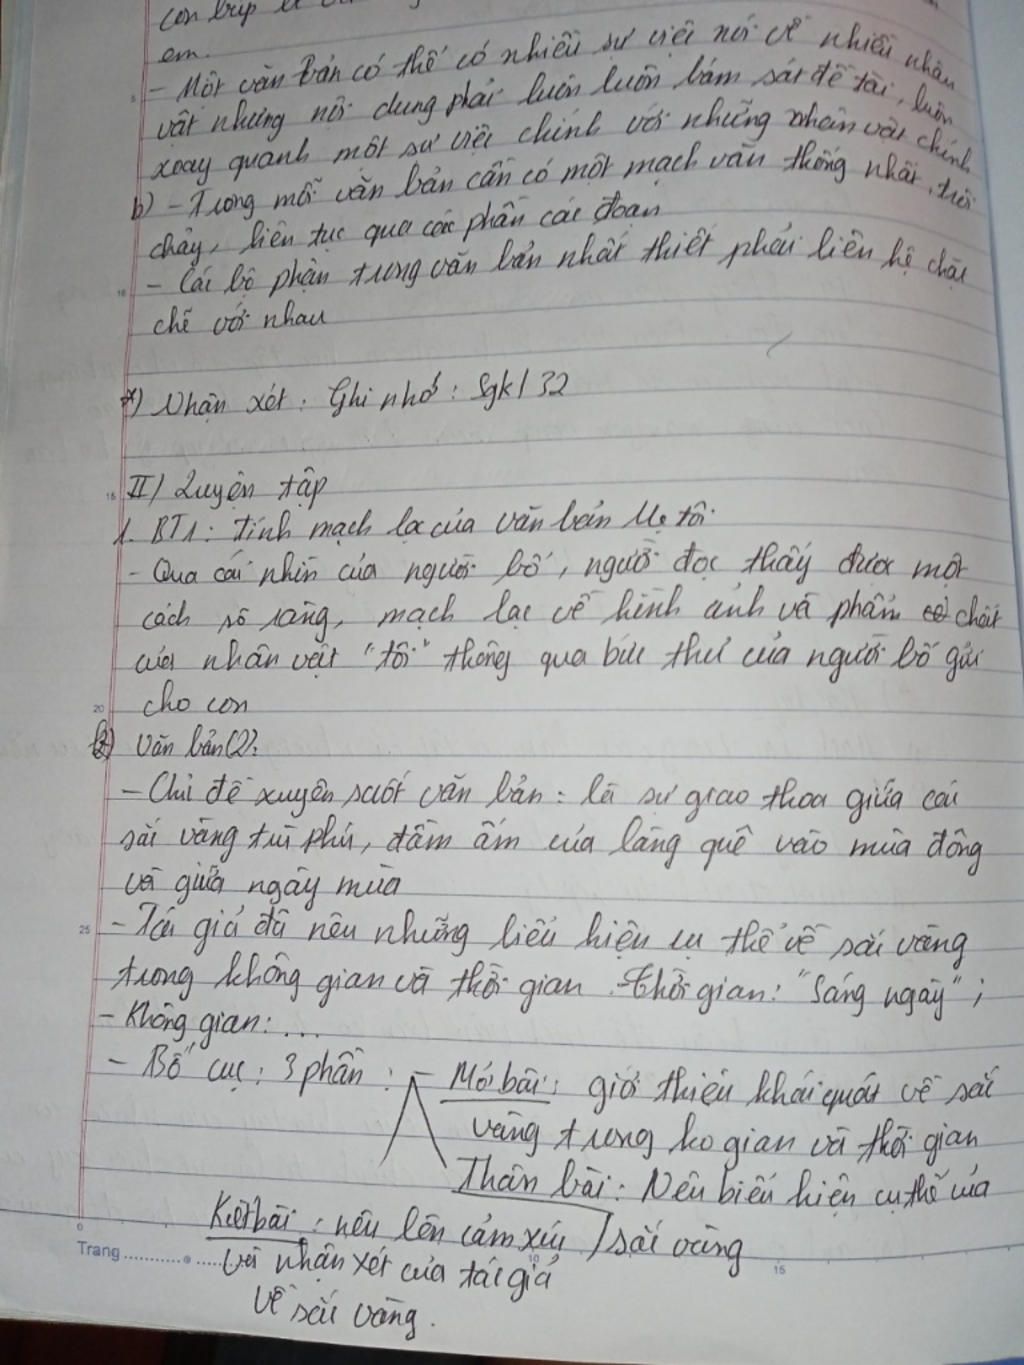 con búp
em.
- Một văn bản có thể có nhiều sự việc nói về nhiều nhân
vật nhưng nội dung phải luôn luôn bám sát đề tài, luôn
xoay quanh một sự việc chính với những nhân vật chính
b) - Trong mỗi văn bản cần có một mạch văn thống nhất, trôi
chảy, liên tục qua các phần các đoạn
- Các bộ phận trong văn bản nhất thiết phải liên hệ chặt
chẽ với nhau
*) Nhận xét: Ghi nhớ: Sgk/32
II) Luyện tập
1. BT1: Tính mạch lạc của văn bản Mẹ tôi
- Qua cái nhìn của người bố, người đọc thấy được một
cách rõ ràng, mạch lạc về hình ảnh và phẩm chất
của nhân vật "tôi" thông qua bức thư của người bố gửi
cho con
Văn bản (2):
- Chủ đề xuyên suốt văn bản: là sự giao thoa giữa cái
sắc vàng trù phú, đầm ấm của làng quê vào mùa đông
và giữa ngày mùa
- Tác giả đã nêu những biểu hiện cụ thể về sắc vàng
trong không gian và thời gian. Thời gian: "Sáng ngày";
- Không gian: ...
- Bố cục: 3 phần: - Mở bài: giới thiệu khái quát về sắc
vàng trong ko gian và thời gian
Thân bài: Nêu biểu hiện cụ thể của
sắc vàng
Kết bài: nêu lên cảm xúc
và nhận xét của tác giả
về sắc vàng.
Trang
5
10
15
20
25
0
10
15